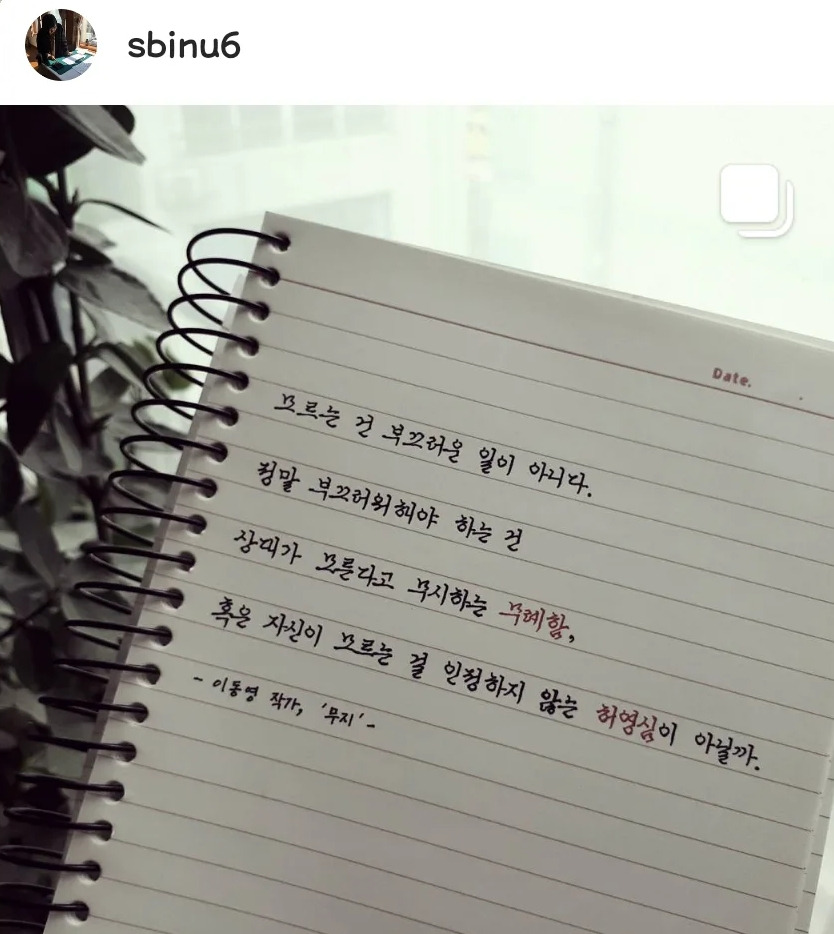 sbinu6
Date.
모르는 건 부끄러운 일이 아니다.
정말 부끄러워해야 하는 건
상대가 모른다고 무시하는 무례함,
혹은 자신이 모르는 걸 인정하지 않는 허영심이 아닐까.
- 이동영 작가, '무지' -